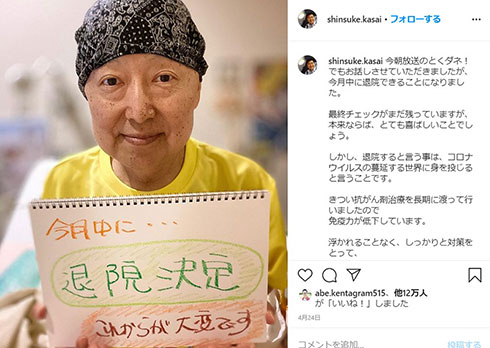 今月中に・・・
退院決定
これからが大変です
shinsuke.kasai・フォローする
shinsuke.kasai 今朝放送のとくダネ！
でもお話しさせていただきましたが、
今月中に退院できることになりまし
た。
最終チェックがまだ残っていますが、
本来ならば、とても喜ばしいことでし
ょう。
しかし、退院すると言う事は、コロナ
ウイルスの蔓延する世界に身を投じる
と言うことです。
きつい抗がん剤治療を長期に渡って行
いましたので
免疫力が低下しています。
浮かれることなく、しっかりと対策を
とって、
abe.kentagram515、他12万人
が「いいね！」しました
4月24日
コメントを追加...
投稿する